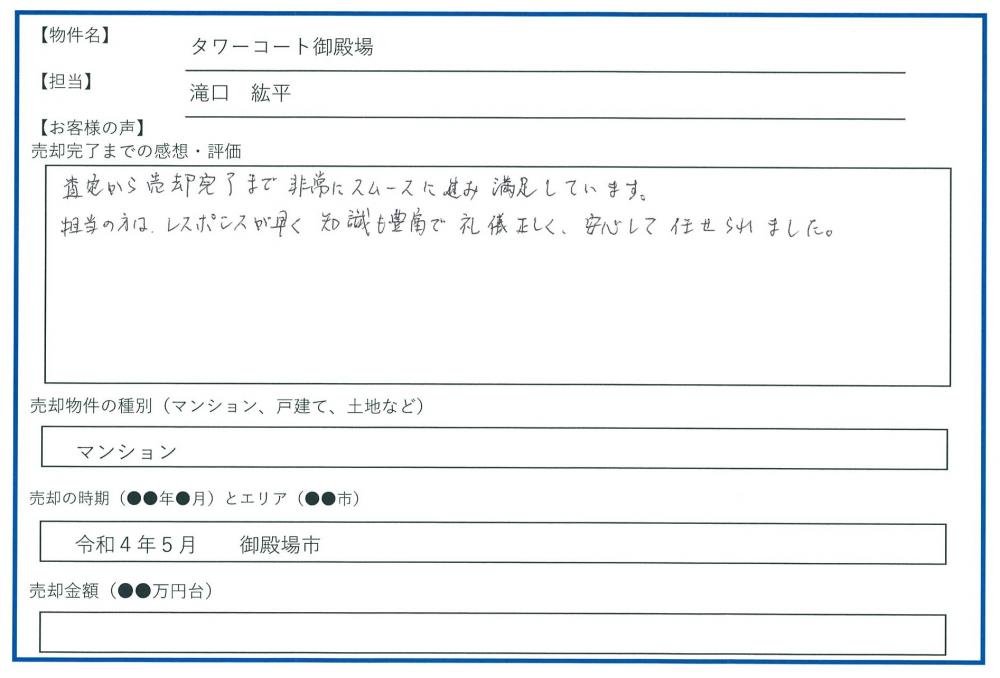 【物件名】
タワーコート御殿場
【担当】
滝口 紘平
【お客様の声】
売却完了までの感想・評価
査定から売却完了まで 非常にスムースに進み 満足しています。
担当の方は、レスポンスが早く 知識も豊富で 礼儀正しく、安心して 任せられました。
売却物件の種別（マンション、戸建て、土地など）
マンション
売却の時期（●●年●月）とエリア（●●市）
令和４年５月 御殿場市
売却金額（●●万円台）